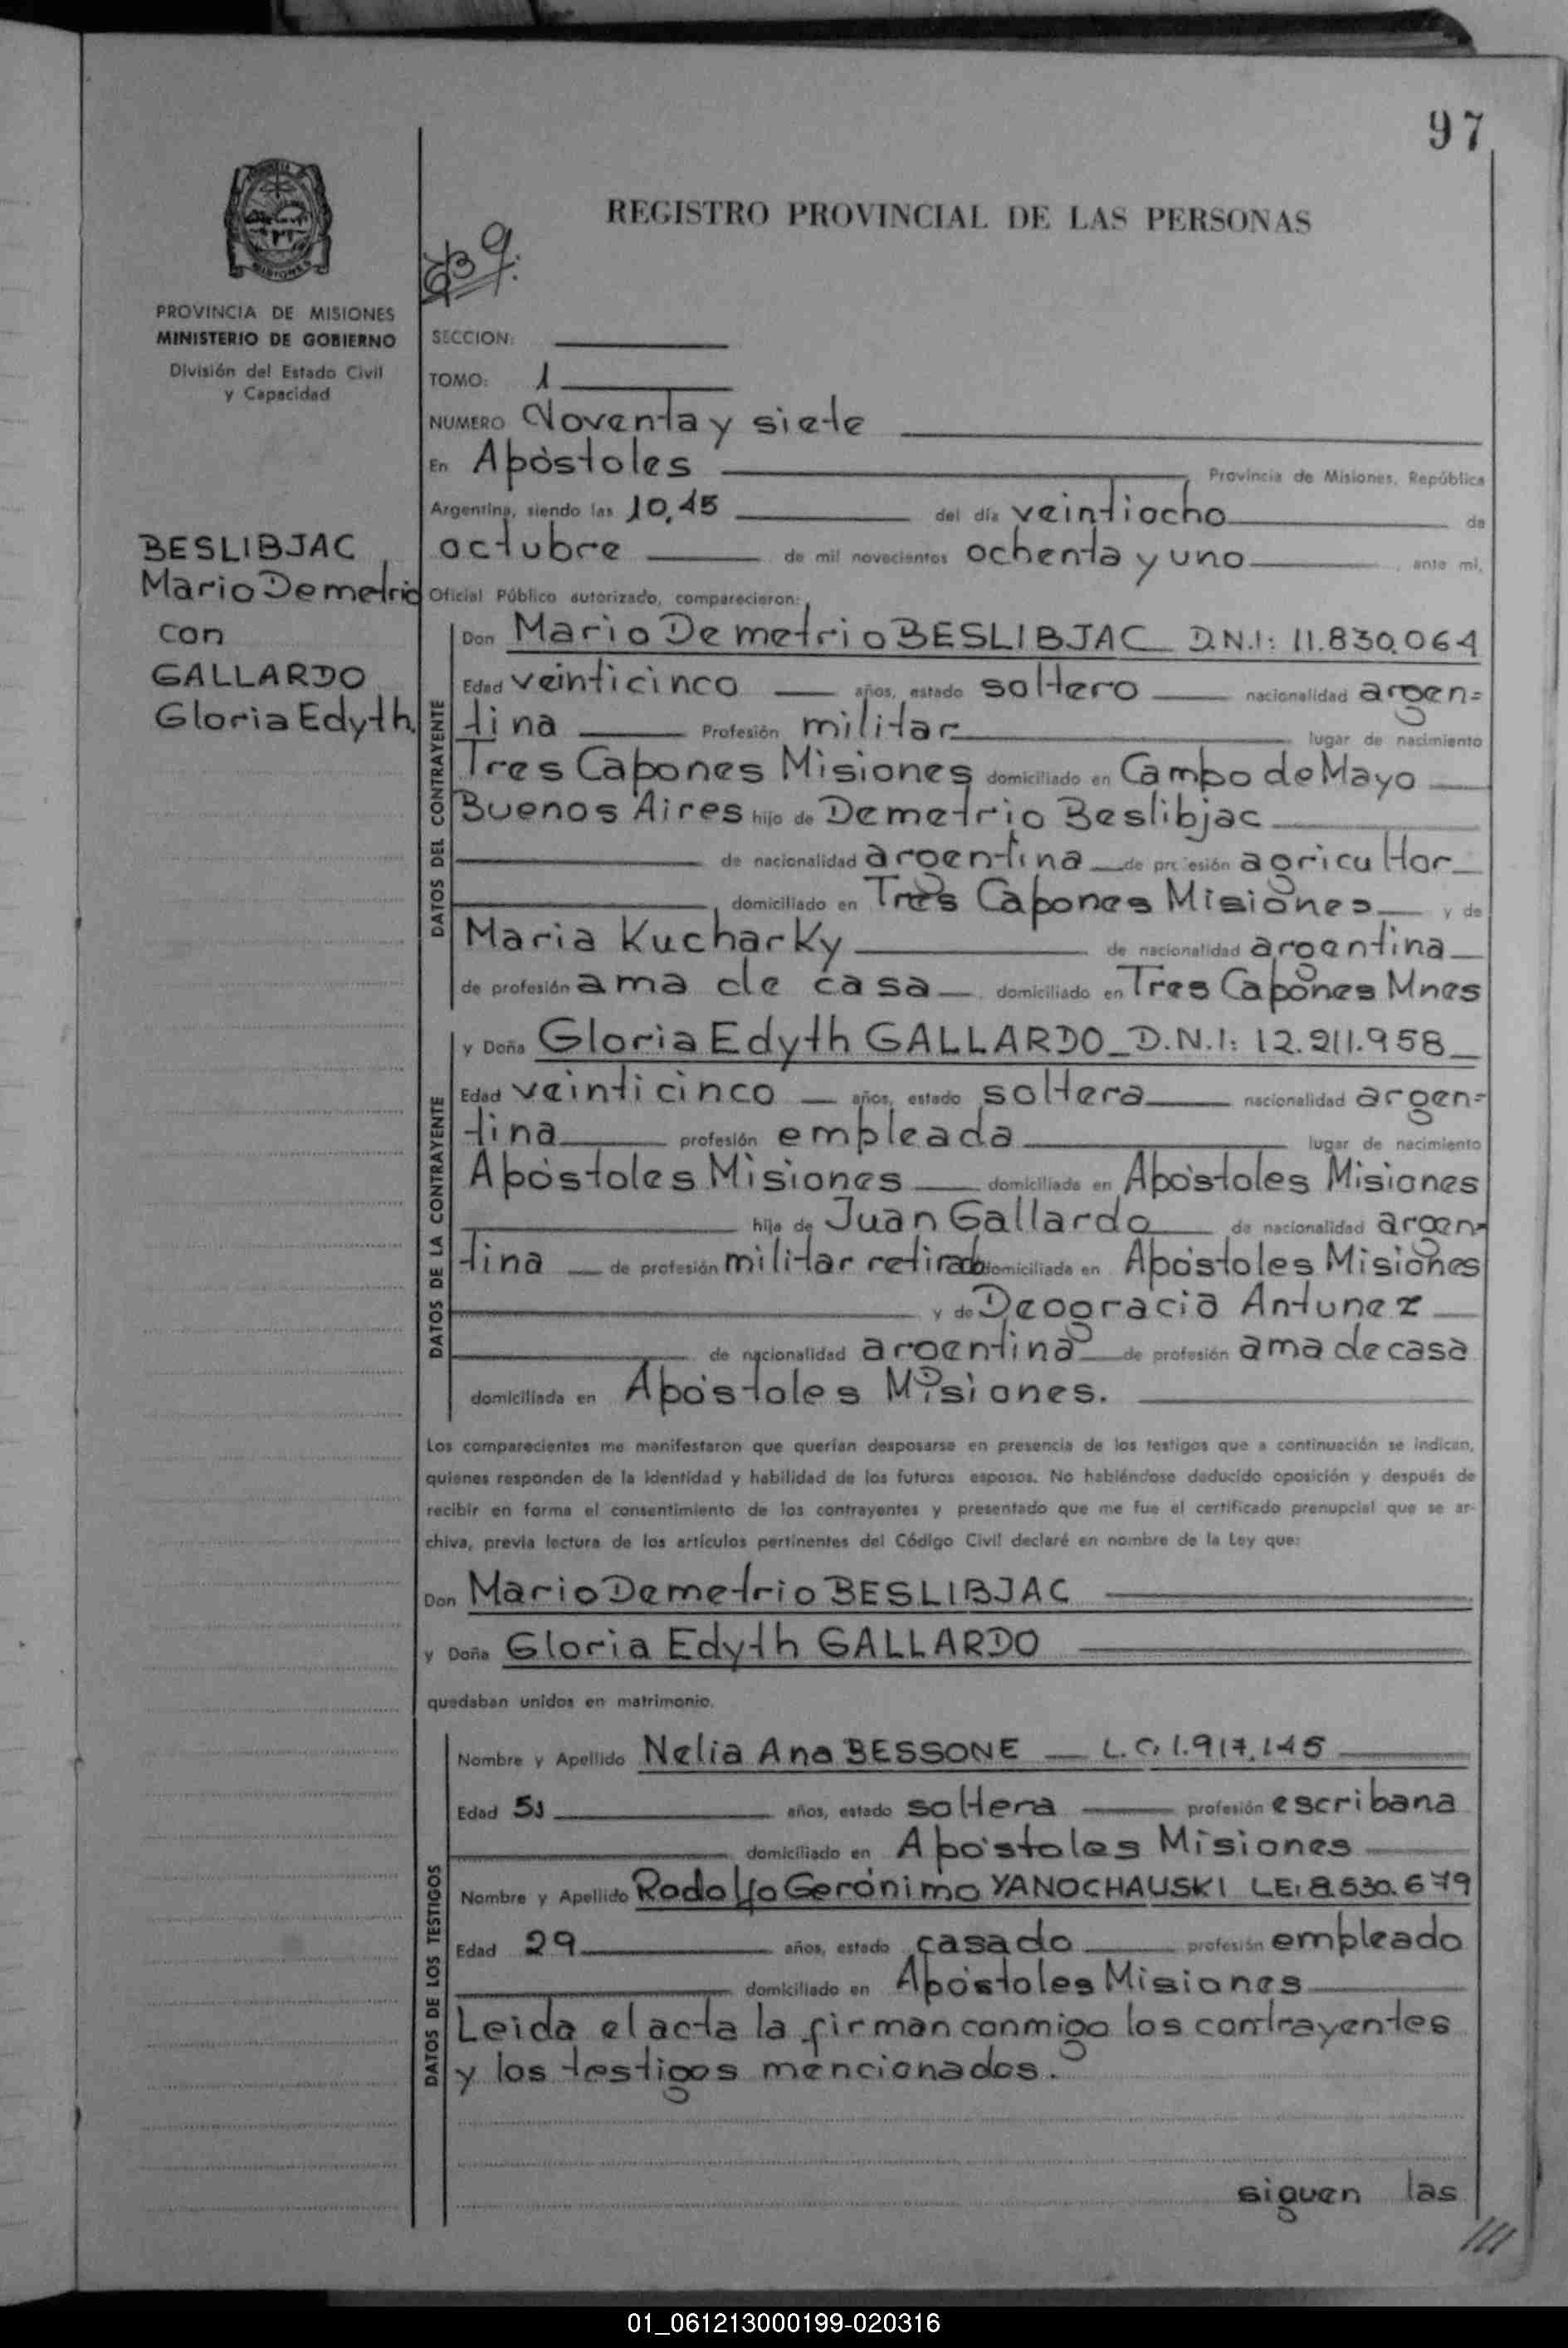 97
REGISTRO PROVINCIAL DE LAS PERSONAS
MISIONES
PROVINCIA DE MISIONES
MINISTERIO DE GOBIERNO
División del Estado Civil
y Capacidad
BESLIBJAC
Mario Demetrio
con
GALLARDO
Gloria Edyth.
SECCION:
TOMO: 1
NUMERO Noventa y siete
En Apóstoles Provincia de Misiones, República
Argentina, siendo las 10,45 del día veintiocho de
octubre de mil novecientos ochenta y uno, ante mí,
Oficial Público autorizado, comparecieron:
DATOS DEL CONTRAYENTE
Don Mario Demetrio BESLIBJAC D.N.I: 11.830.064
Edad veinticinco años, estado soltero nacionalidad argen=
tina Profesión militar lugar de nacimiento
Tres Capones Misiones domiciliado en Campo de Mayo
Buenos Aires hijo de Demetrio Beslibjac
de nacionalidad argentina de profesión agricultor
domiciliado en Tres Capones Misiones y de
Maria Kucharky de nacionalidad argentina
de profesión ama de casa domiciliado en Tres Capones Mnes
DATOS DE LA CONTRAYENTE
y Doña Gloria Edyth GALLARDO D.N.I: 12.211.958
Edad veinticinco años, estado soltera nacionalidad argen=
tina profesión empleada lugar de nacimiento
Apóstoles Misiones domiciliada en Apóstoles Misiones
hija de Juan Gallardo de nacionalidad argen=
tina de profesión militar retirado domiciliada en Apóstoles Misiones
y de Deogracia Antunez
de nacionalidad argentina de profesión ama de casa
domiciliada en Apóstoles Misiones.
Los comparecientes me manifestaron que querían desposarse en presencia de los testigos que a continuación se indican,
quienes responden de la identidad y habilidad de los futuros esposos. No habiéndose deducido oposición y después de
recibir en forma el consentimiento de los contrayentes y presentado que me fue el certificado prenupcial que se ar-
chiva, previa lectura de los artículos pertinentes del Código Civil declaré en nombre de la Ley que:
Don Mario Demetrio BESLIBJAC
y Doña Gloria Edyth GALLARDO
quedaban unidos en matrimonio.
DATOS DE LOS TESTIGOS
Nombre y Apellido Nelia Ana BESSONE L.C. 1.917.145
Edad 51 años, estado soltera profesión escribana
domiciliado en Apóstoles Misiones
Nombre y Apellido Rodolfo Gerónimo YANOCHAUSKI LE: 8.530.679
Edad 29 años, estado casado profesión empleado
domiciliado en Apóstoles Misiones
Leida el acta la firman conmigo los contrayentes
y los testigos mencionados.
siguen las
///
01_061213000199-020316